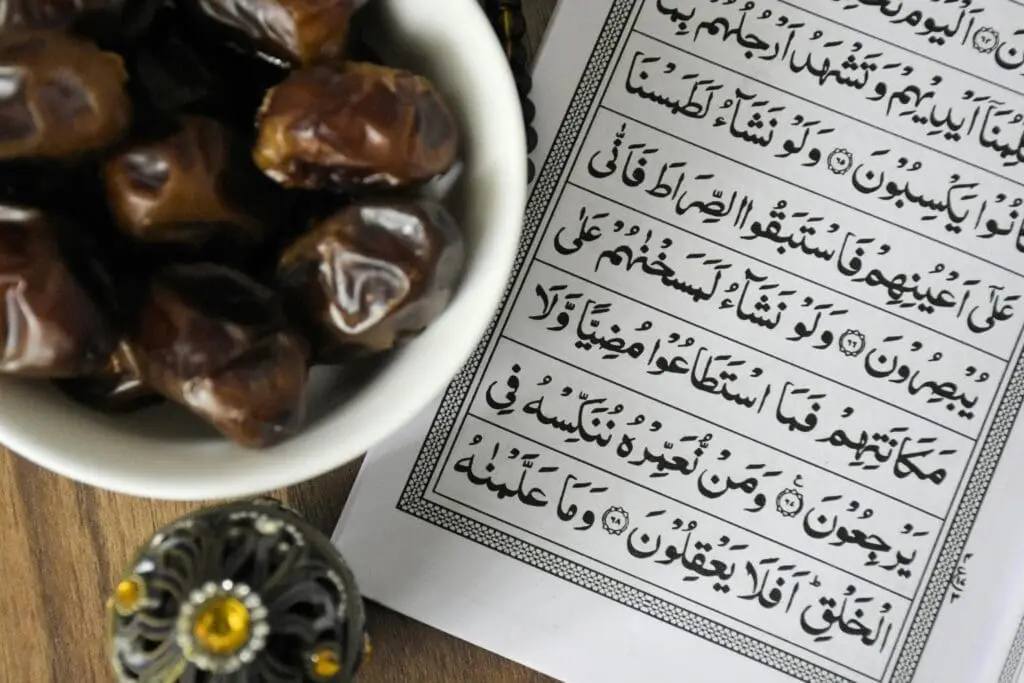 اَلْيَوْمَ
اَيْدِيْهِمْ وَتَشْهَدُ اَرْجُلُهُمْ بِمَا
يَكْسِبُوْنَ ۶۵ وَلَوْ نَشَآءُ لَطَمَسْنَا
عَلٰٓى اَعْيُنِهِمْ فَاسْتَبَقُوا الصِّرَاطَ فَاَنّٰى
يُبْصِرُوْنَ ۶۶ وَلَوْ نَشَآءُ لَمَسَخْنٰهُمْ عَلٰى
مَكَانَتِهِمْ فَمَا اسْتَطَاعُوْا مُضِيًّا وَّلَا
يَرْجِعُوْنَ ۶۷ وَمَنْ نُّعَمِّرْهُ نُنَكِّسْهُ فِى
الْخَلْقِ ؕ اَفَلَا يَعْقِلُوْنَ ۶۸ وَمَا عَلَّمْنٰهُ